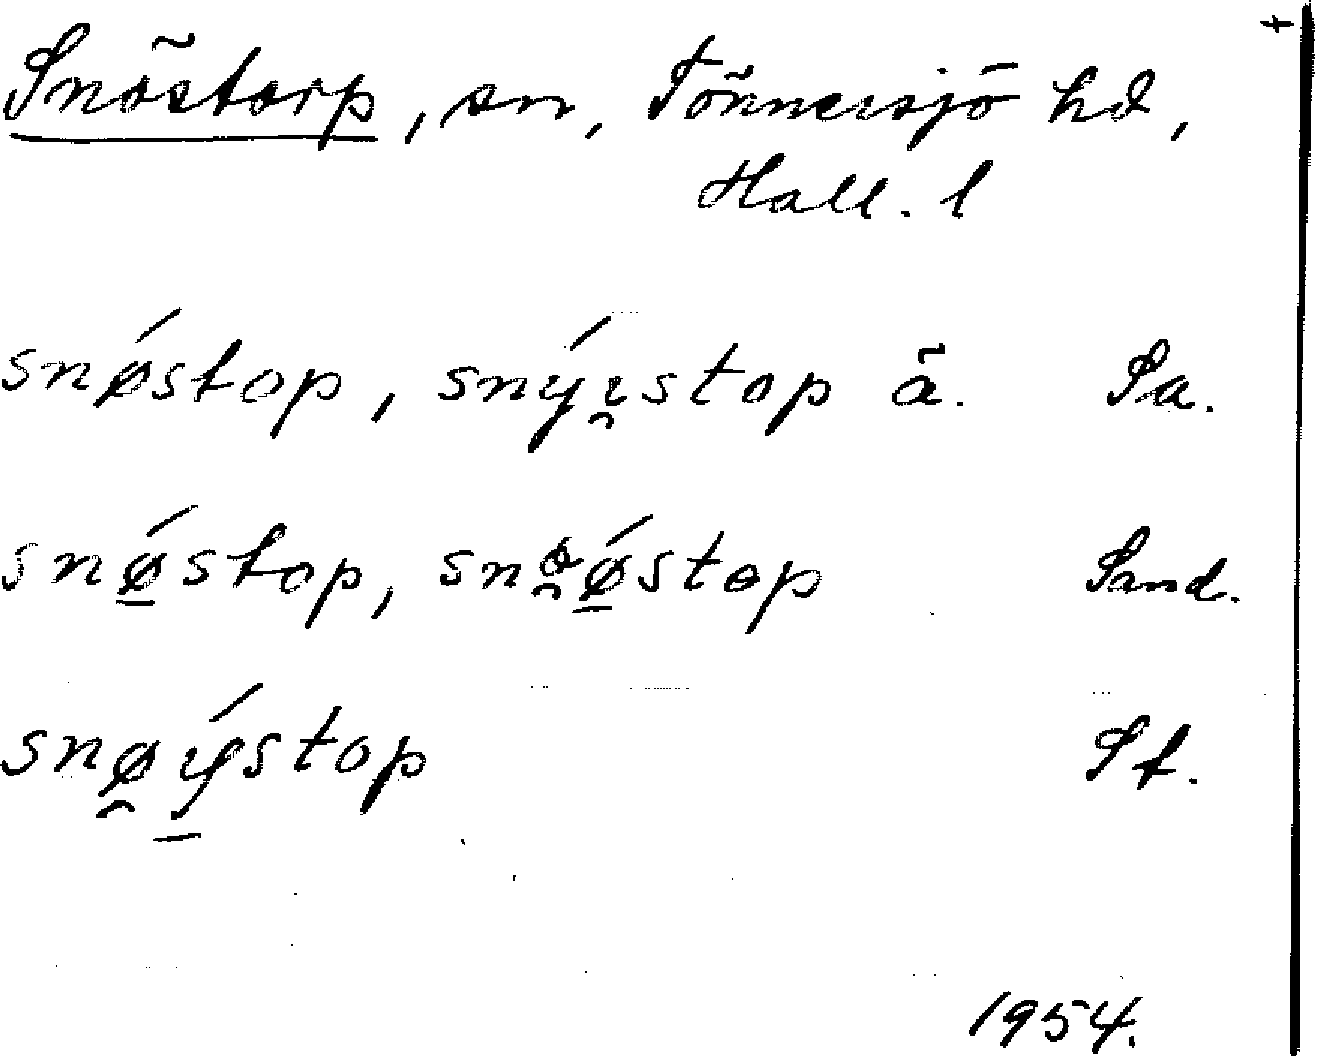 +
Snöstorp, sn, Tönnersjö hd,
Hall. l
snǿstop, snýı̯stop ä. Sa.
snǿ̲stop, sno̯ǿ̲stop Sand.
snø̯ý̲stop St.
1954.